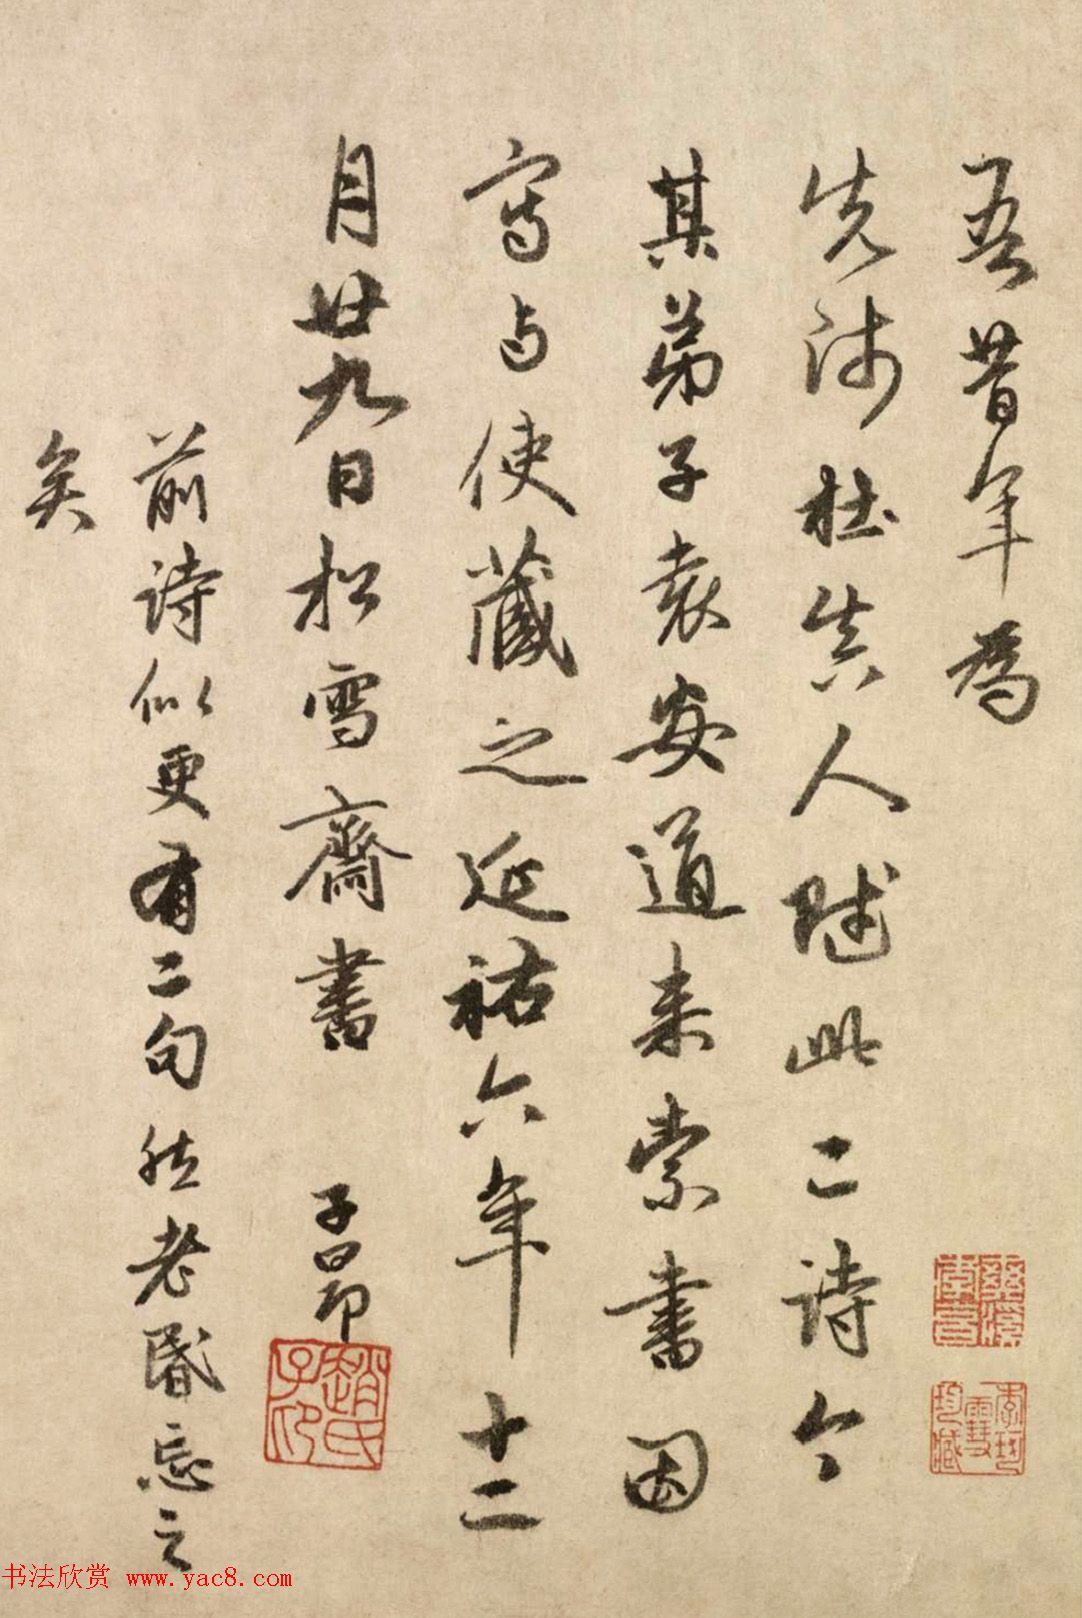 吾昔年為
先師杜真人賦此二詩今
其弟子袁安道来索書因
寫与使藏之延祐六年十二
月廿九日松雪齋書 子昂
趙氏子卬
前詩似更有二句然老昏忘之
矣
书法欣赏 www.yac8.com